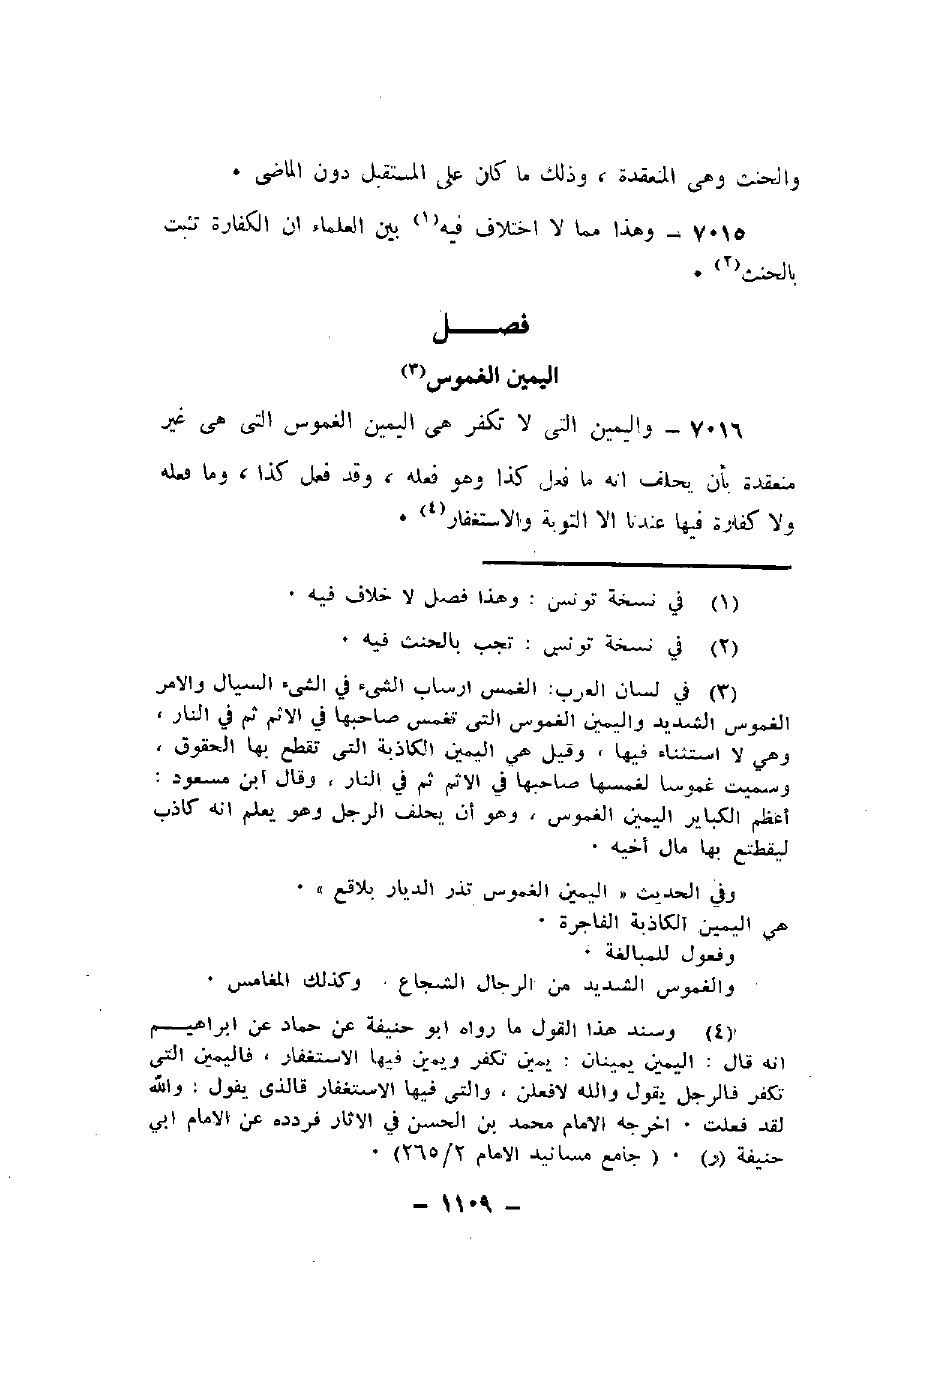 والحنث وهى المنعقدة ، وذلك ما كان على المستقبل دون الماضى .
٧٠١٥ – وهذا مما لا اختلاف فيه(١) بين العلماء ان الكفارة تثبت
بالحنث(٢) .
فصـــــل
اليمين الغموس(٣)
٧٠١٦ – واليمين التى لا تكفر هى اليمين الغموس التى هى غير
منعقدة بأن يحلف انه ما فعل كذا وهو فعله ، وقد فعل كذا ، وما فعله
ولا كفارة فيها عندنا الا التوبة والاستغفار(٤) .
(١) في نسخة تونس : وهذا فصل لا خلاف فيه .
(٢) في نسخة تونس : تجب بالحنث فيه .
(٣) في لسان العرب: الغمس ارساب الشىء في الشىء السيال والامر
الغموس الشديد واليمين الغموس التى تغمس صاحبها في الاثم ثم في النار ،
وهي لا استثناء فيها ، وقيل هي اليمين الكاذبة التى تقطع بها الحقوق ،
وسميت غموسا لغمسها صاحبها في الاثم ثم في النار ، وقال ابن مسعود :
أعظم الكباير اليمين الغموس ، وهو أن يحلف الرجل وهو يعلم انه كاذب
ليقطتع بها مال أخيه .
وفي الحديث « اليمين الغموس تذر الديار بلاقع » .
هي اليمين الكاذبة الفاجرة .
وفعول للمبالغة .
والغموس الشديد من الرجال الشجاع . وكذلك المغامس .
(٤) وسند هذا القول ما رواه ابو حنيفة عن حماد عن ابراهيـــم
انه قال : اليمين يمينان : يمين تكفر ويمين فيها الاستغفار ، فاليمين التي
تكفر فالرجل يقول والله لافعلن ، والتي فيها الاستغفار قالذى يفول : والله
لقد فعلت . اخرجه الامام محمد بن الحسن في الاثار فردده عن الامام ابي
حنيفة (ر) . ( جامع مسانيد الامام ٢/٢٦٥) .
– ١١٠٩ –